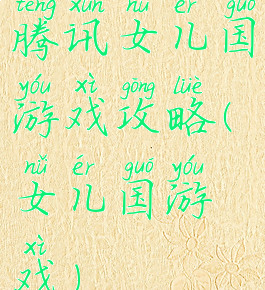 téng xùn nǚ ér guó
腾讯女儿国
yóu xì gōng lüè
游戏攻略(
nǚ ér guó yóu
女儿国游
xì
戏)